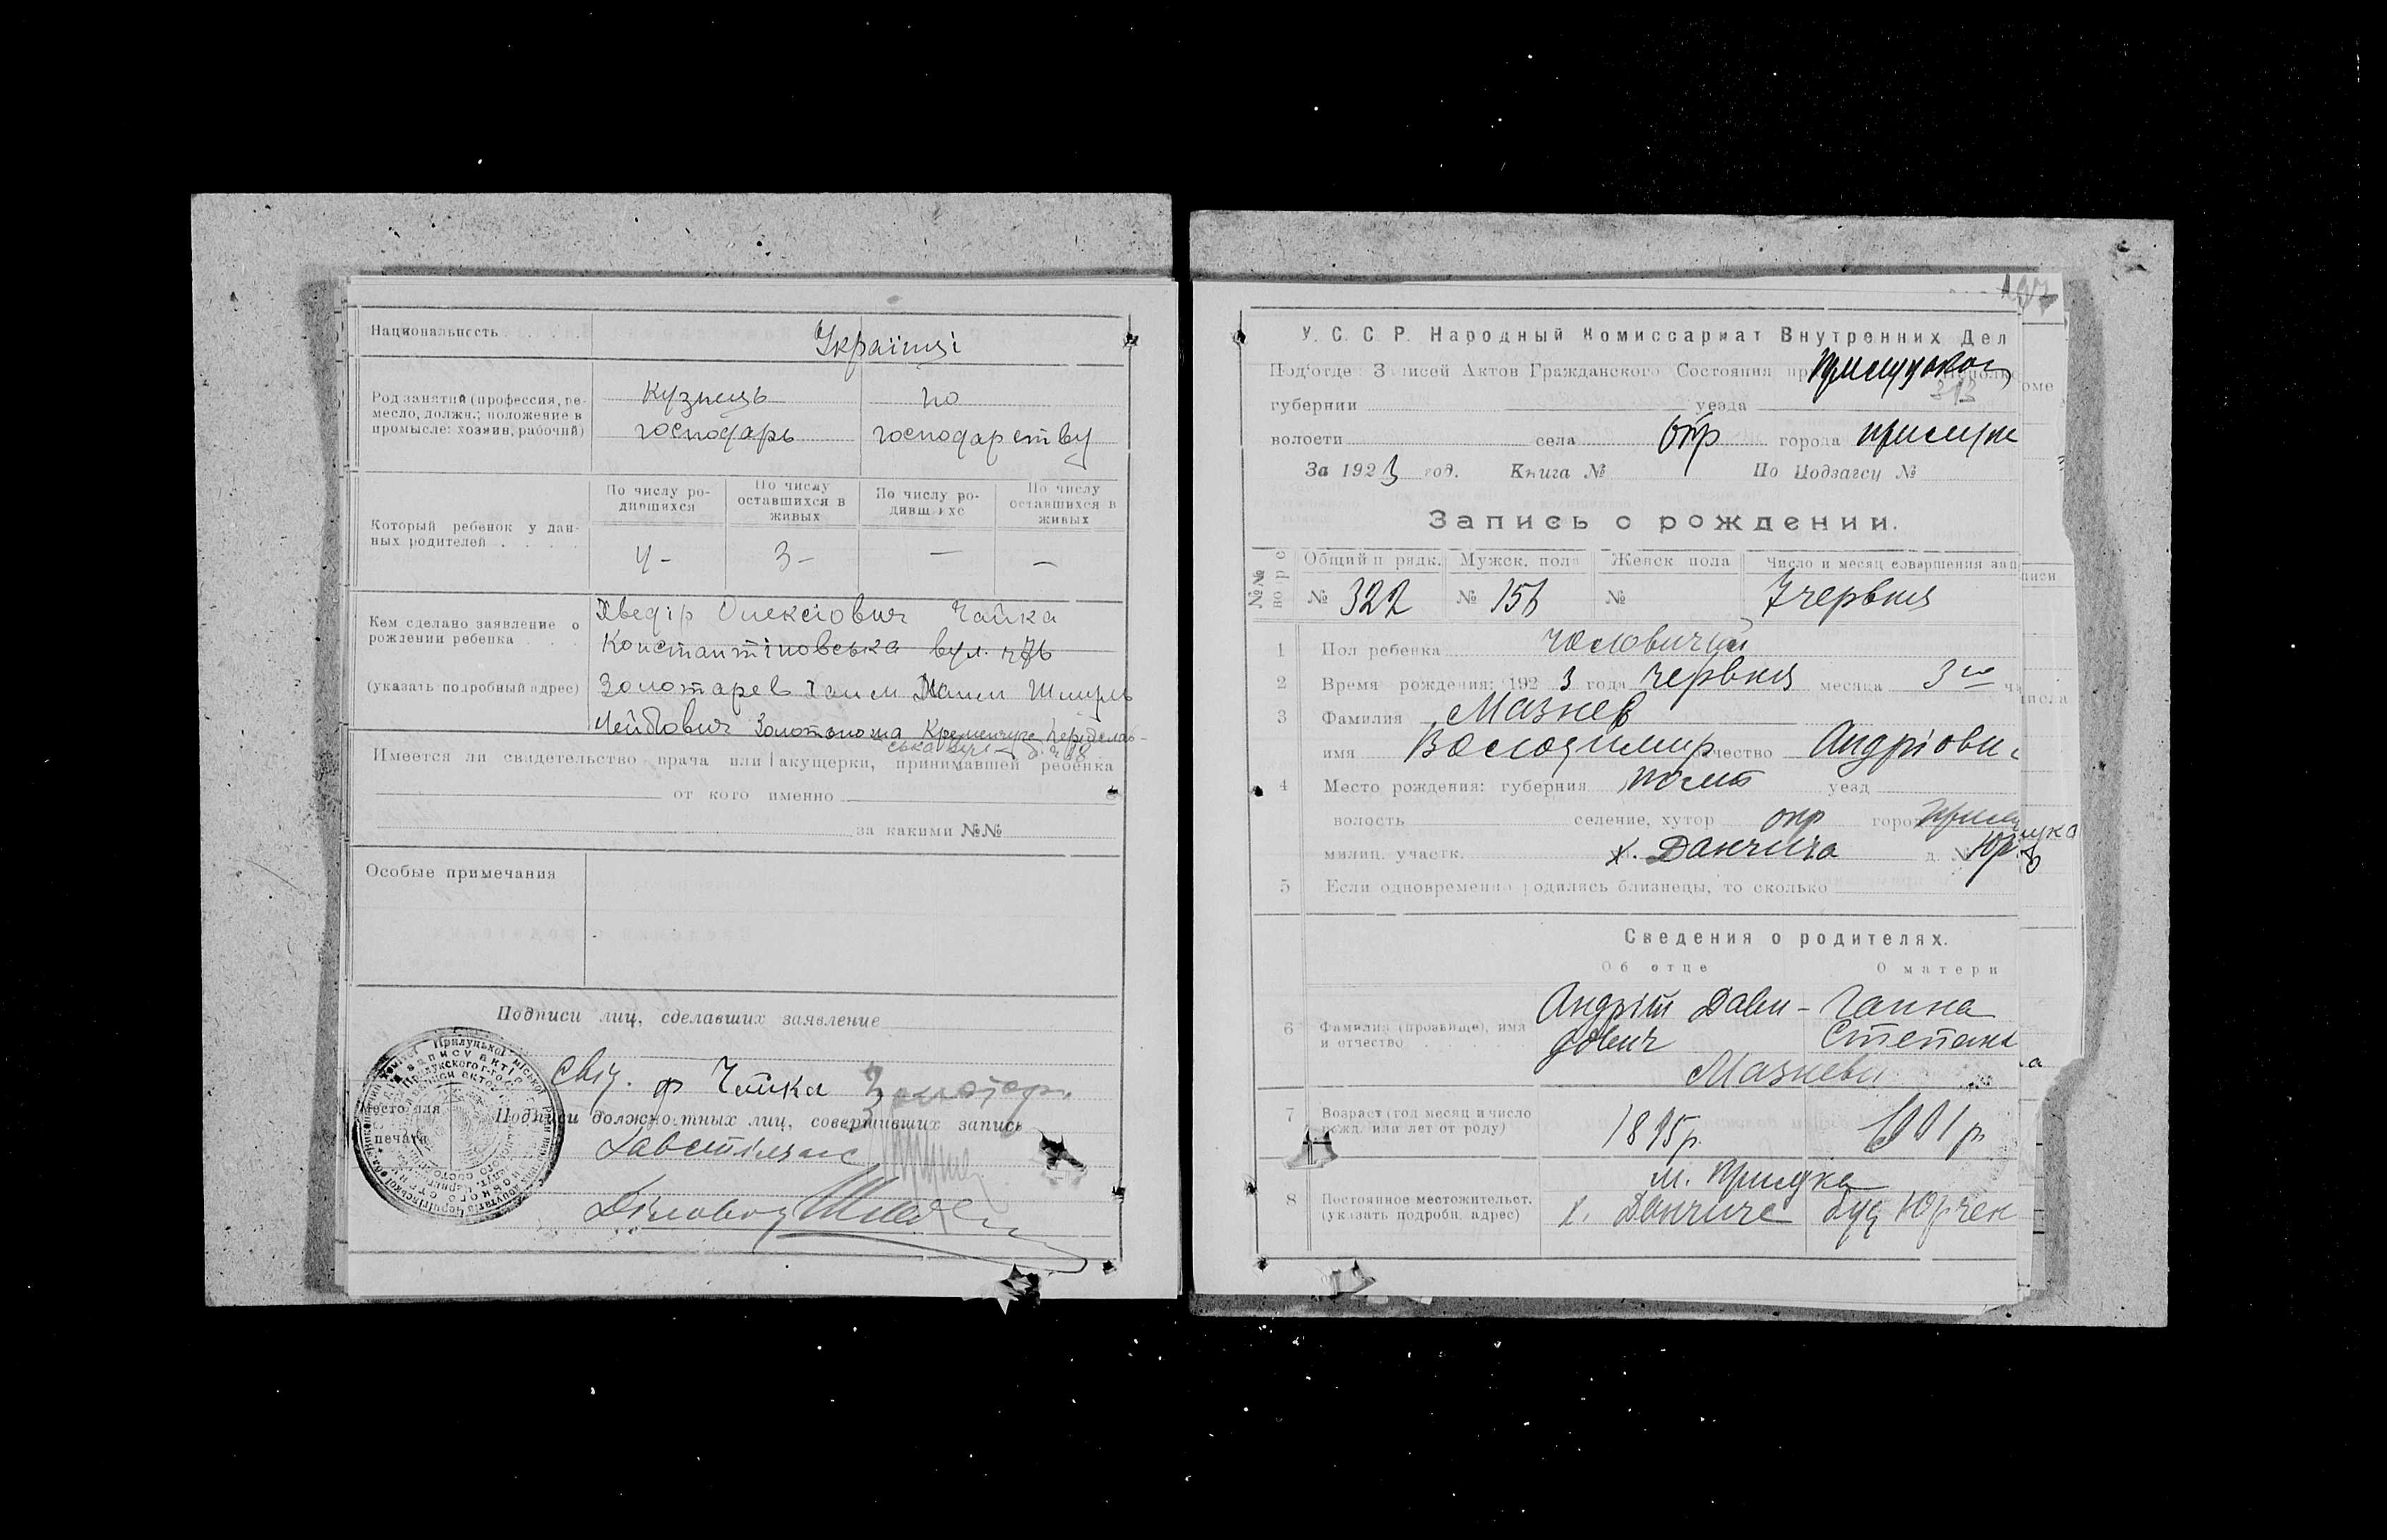 Национальность
Українці
Род занятий (профессия, ре-
месло, должн.; положение в
промысле: хозяин, рабочий)
кузнець
господарь
по
господарству
Который ребенок у дан-
ных родителей
По числу ро-
дившихся
По числу
оставшихся в
живых
По числу ро-
дивш хс
По числу
оставшихся в
живых
4 -
3 -
—
—
Кем сделано заявление о
рождении ребенка
(указать подробный адрес)
Хведір Олексіович Чайка
Константіновська вул. №76
Золотарев Хаим Шмуль
Лейбович Золотоноша Кременчуке Переяслав-
ська вул. д. №68
Имеется ли свидетельство врача или акушерки, принимавшей ребенка
от кого именно
за какими №№
Особые примечания
Подписи лиц, сделавших заявление
Свід. Ф Чайка Золотар.
Место для
печати
Подписи должностных лиц, совершивших запись
Завстілзагс
Діловод
197
У. С. С. Р. Народный Комиссариат Внутренних Дел
Под'отде Записей Актов Гражданского Состояния при Прилуцком
313
губернии уезда
волости села Окр города Прилуки
За 1923 год. Книга № По Подзагсу №
Запись о рождении.
№№
Общий п рядк. Мужск. пола Женск. пола Число и месяц совершения зап
№ 322 № 156 № 7 червня
1 Пол ребенка чоловичий
2 Время рождения: 1923 года червня месяца 3го чи
3 Фамилия Мазнев
имя Володимир отчество Андріови
4 Место рождения: губерния Полт уезд
волость селение, хутор окр город Прилука
милиц. участк. х. Данчича д. № Юр
5 Если одновременно родились близнецы, то сколько
Сведения о родителях.
Об отце О матери
6 Фамилия (прозвище), имя
и отчество
Андрій Дави-
дович
Ганна
Степан
Мазневи
7 Возраст (год месяц и число
рожд. или лет от роду)
1895р.
1901р.
8 Постоянное местожительст.
(указать подробн. адрес)
м. Прилука
х. Данчиче буд Юрчен